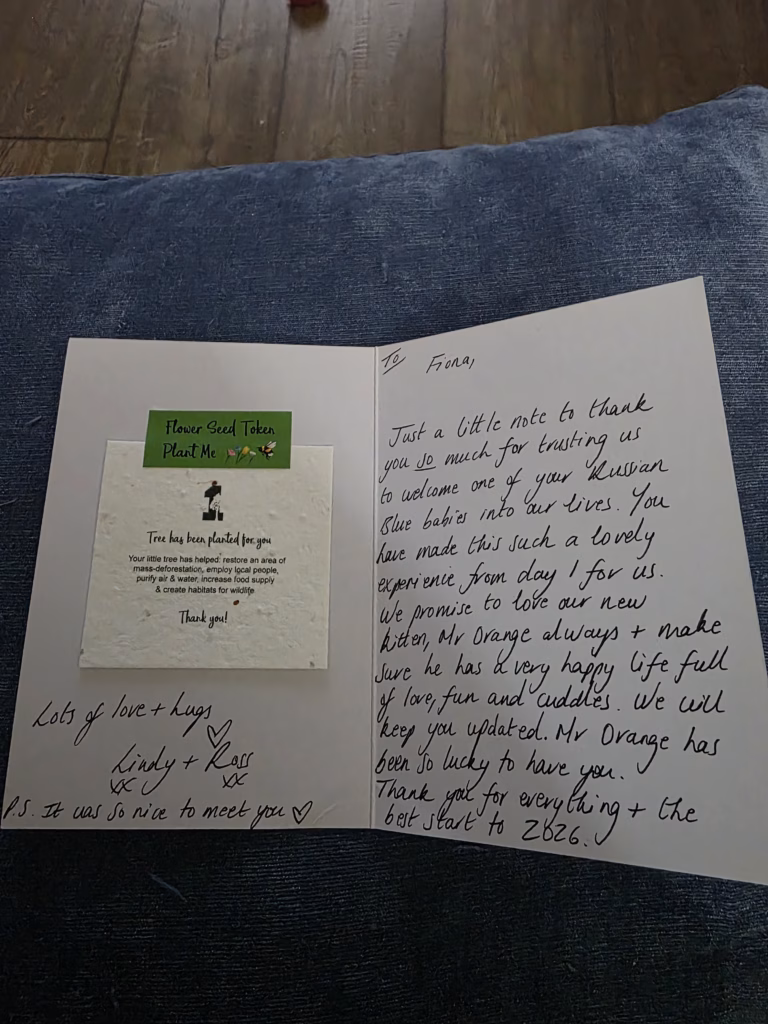 Flower Seed Token
Plant Me
Tree has been planted for you
Your little tree has helped: restore an area of
mass-deforestation, employ local people,
purify air & water, increase food supply
& create habitats for wildlife
Thank you!
Lots of love + hugs
Lindy + Ross
xx xx
P.S. It was so nice to meet you
To Fiona,
Just a little note to thank
you so much for trusting us
to welcome one of your Russian
Blue babies into our lives. You
have made this such a lovely
experience from day 1 for us.
We promise to love our new
kitten, Mr Orange always + make
sure he has a very happy life full
of love, fun and cuddles. We will
keep you updated. Mr Orange has
been so lucky to have you.
Thank you for everything + the
best start to 2026.